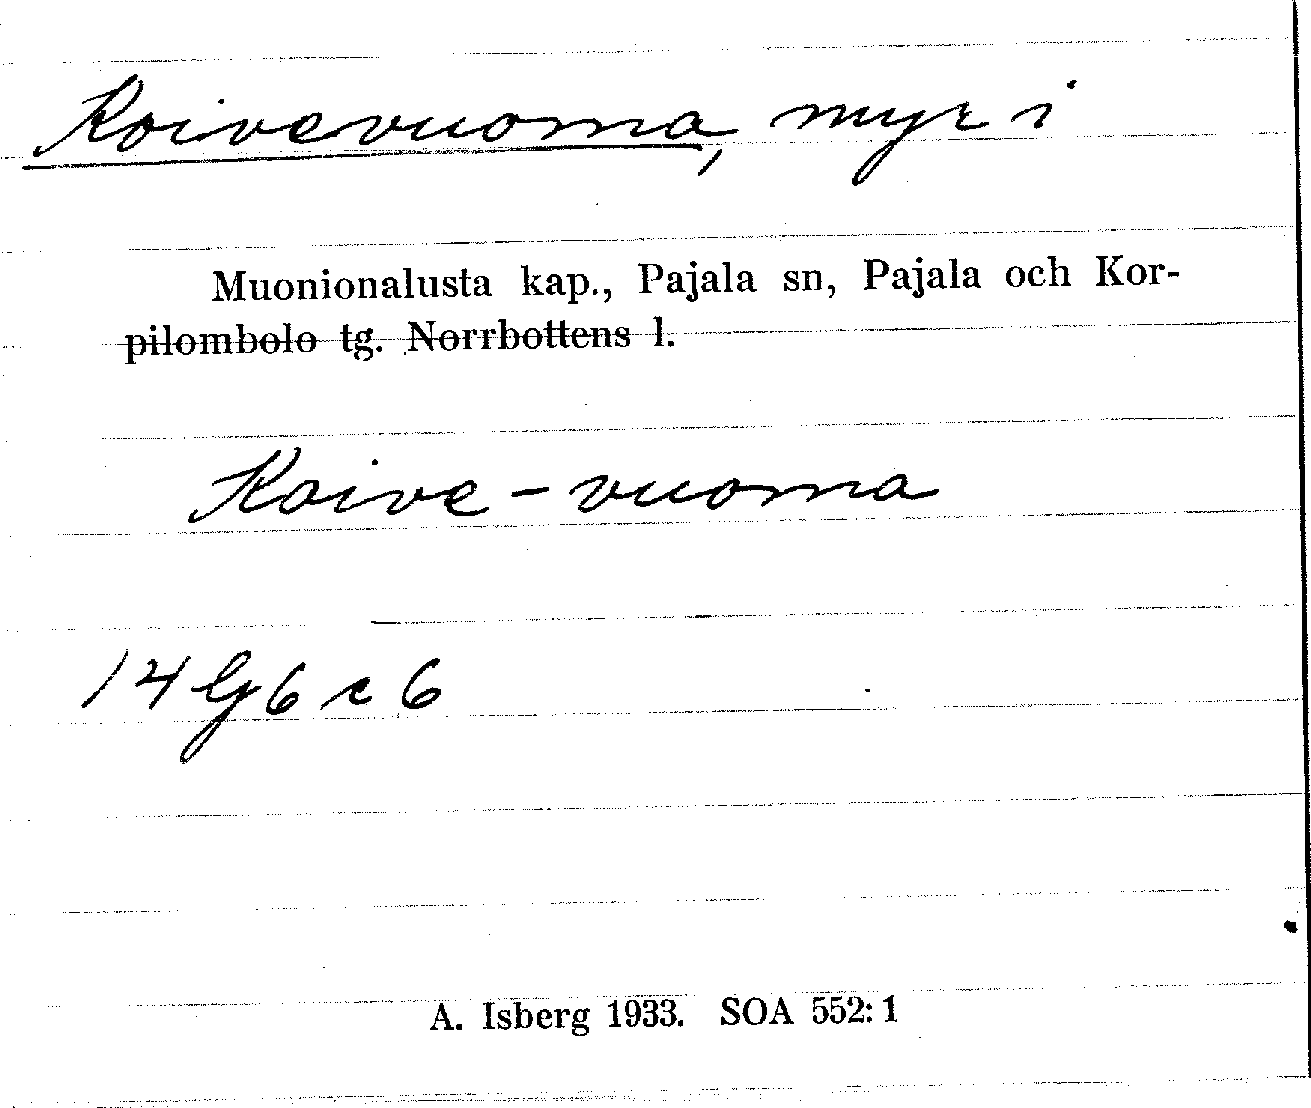 Koivevuoma, myr i
Muonionalusta kap., Pajala sn, Pajala och Kor-
pilombolo tg. Norrbottens l.
Koive-vuoma
14 G 6 c 6
A. Isberg 1933. SOA 552:1